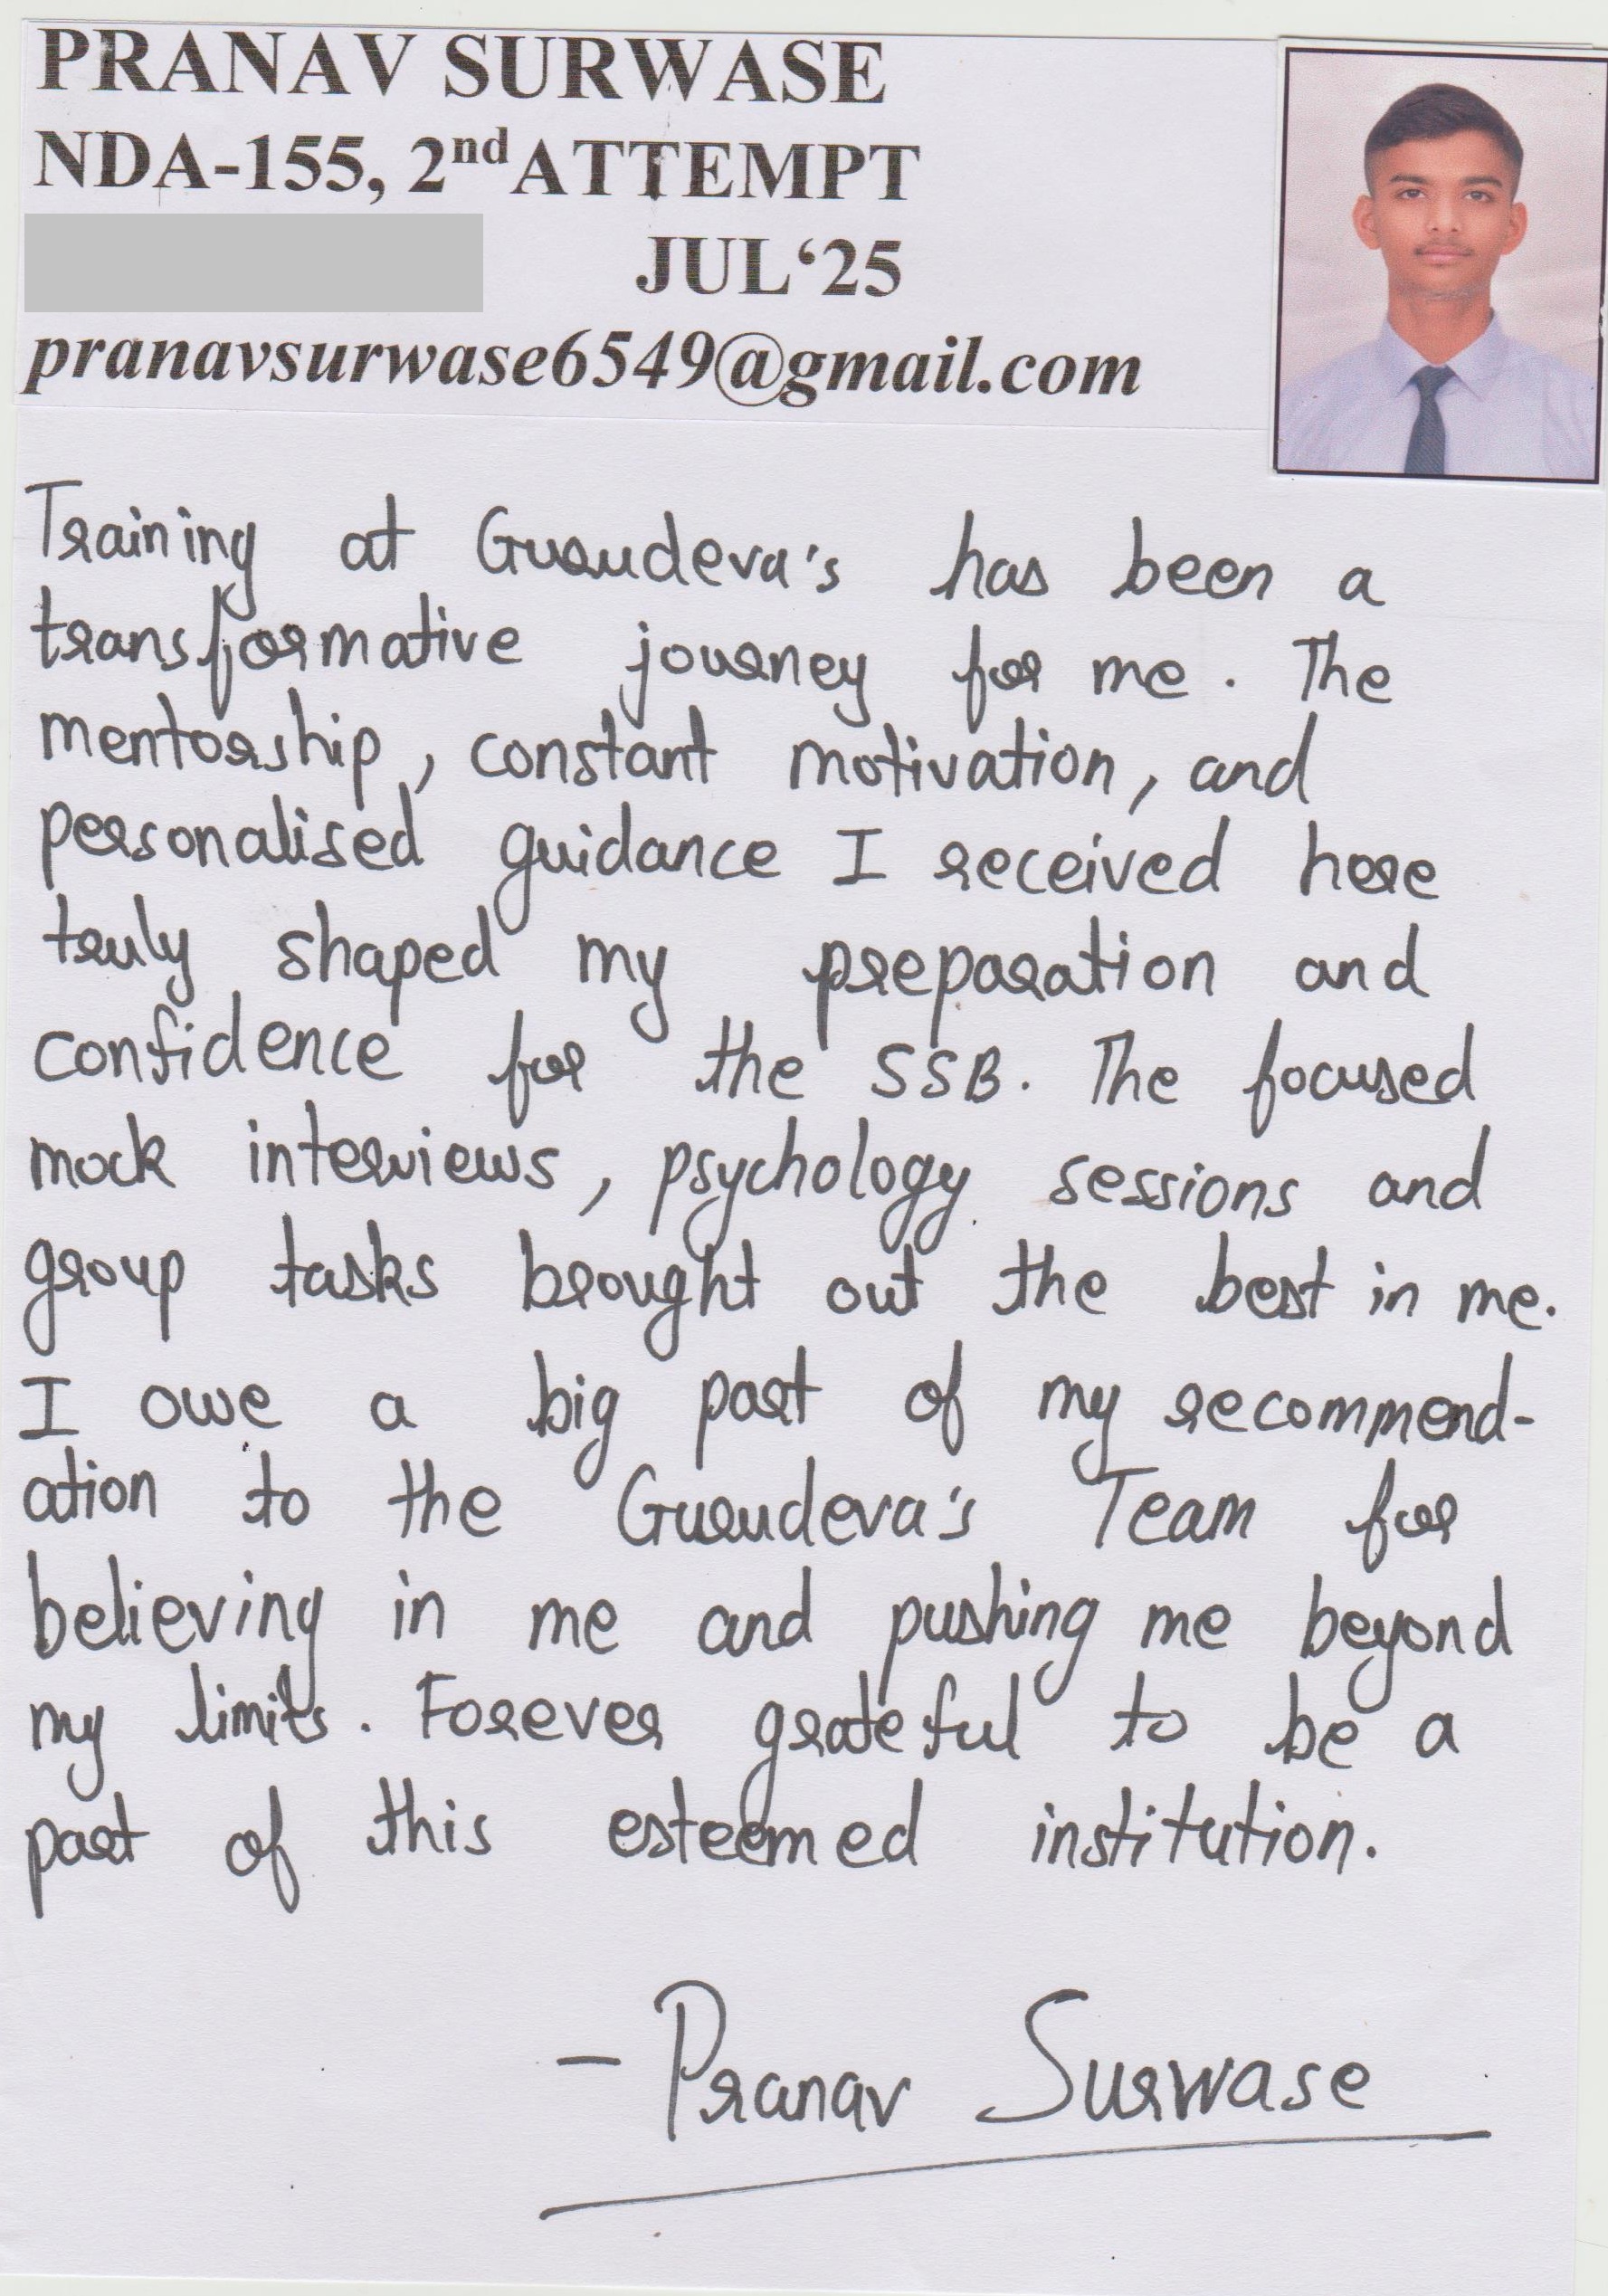 PRANAV SURWASE
NDA-155, 2nd ATTEMPT
JUL‘25
pranavsurwase6549@gmail.com
Training at Gurudeva's has been a
transformative journey for me. The
mentorship, constant motivation, and
personalised guidance I received here
truly shaped my preparation and
confidence for the SSB. The focused
mock interviews, psychology sessions and
group tasks brought out the best in me.
I owe a big part of my recommend-
ation to the Gurudeva's Team for
believing in me and pushing me beyond
my limits. Forever grateful to be a
part of this esteemed institution.
– Pranav Surwase